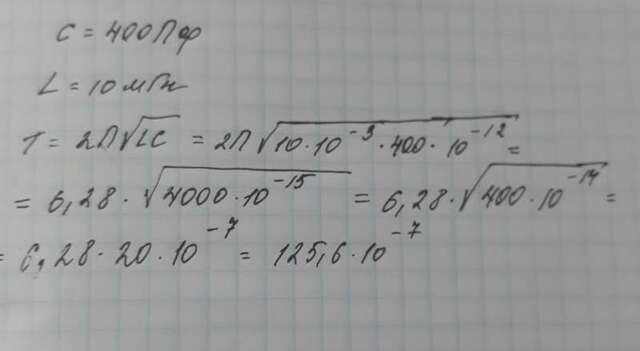 C = 400 Пф
L = 10 мГн
T = 2П√LC = 2П√10·10⁻³·400·10⁻¹² =
= 6,28·√4000·10⁻¹⁵ = 6,28·√400·10⁻¹⁴ =
= 6,28·20·10⁻⁷ = 125,6·10⁻⁷